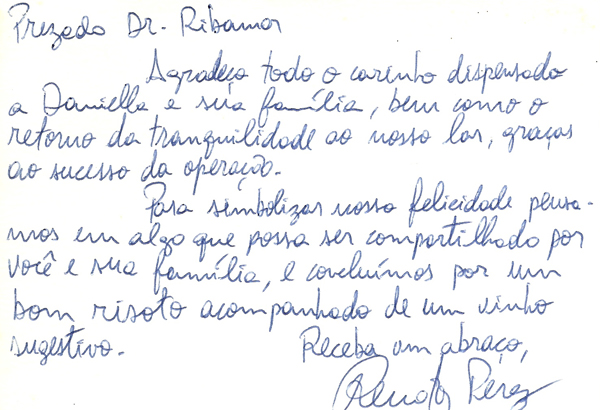 Prezado Dr. Ribamar
Agradeço todo o carinho dispensado
a Daniella e sua família, bem como o
retorno da tranquilidade ao nosso lar, graças
ao sucesso da operação.
Para simbolizar nossa felicidade pensa-
mos em algo que possa ser compartilhado por
você e sua família, e concluímos por um
bom risoto acompanhado de um vinho
sugestivo.
Receba um abraço,
Renata Perez